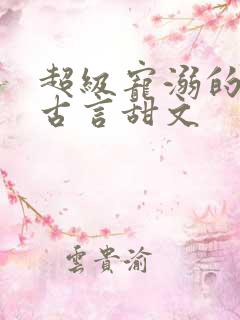 超级宠溺的
古言甜文
雲貴渝